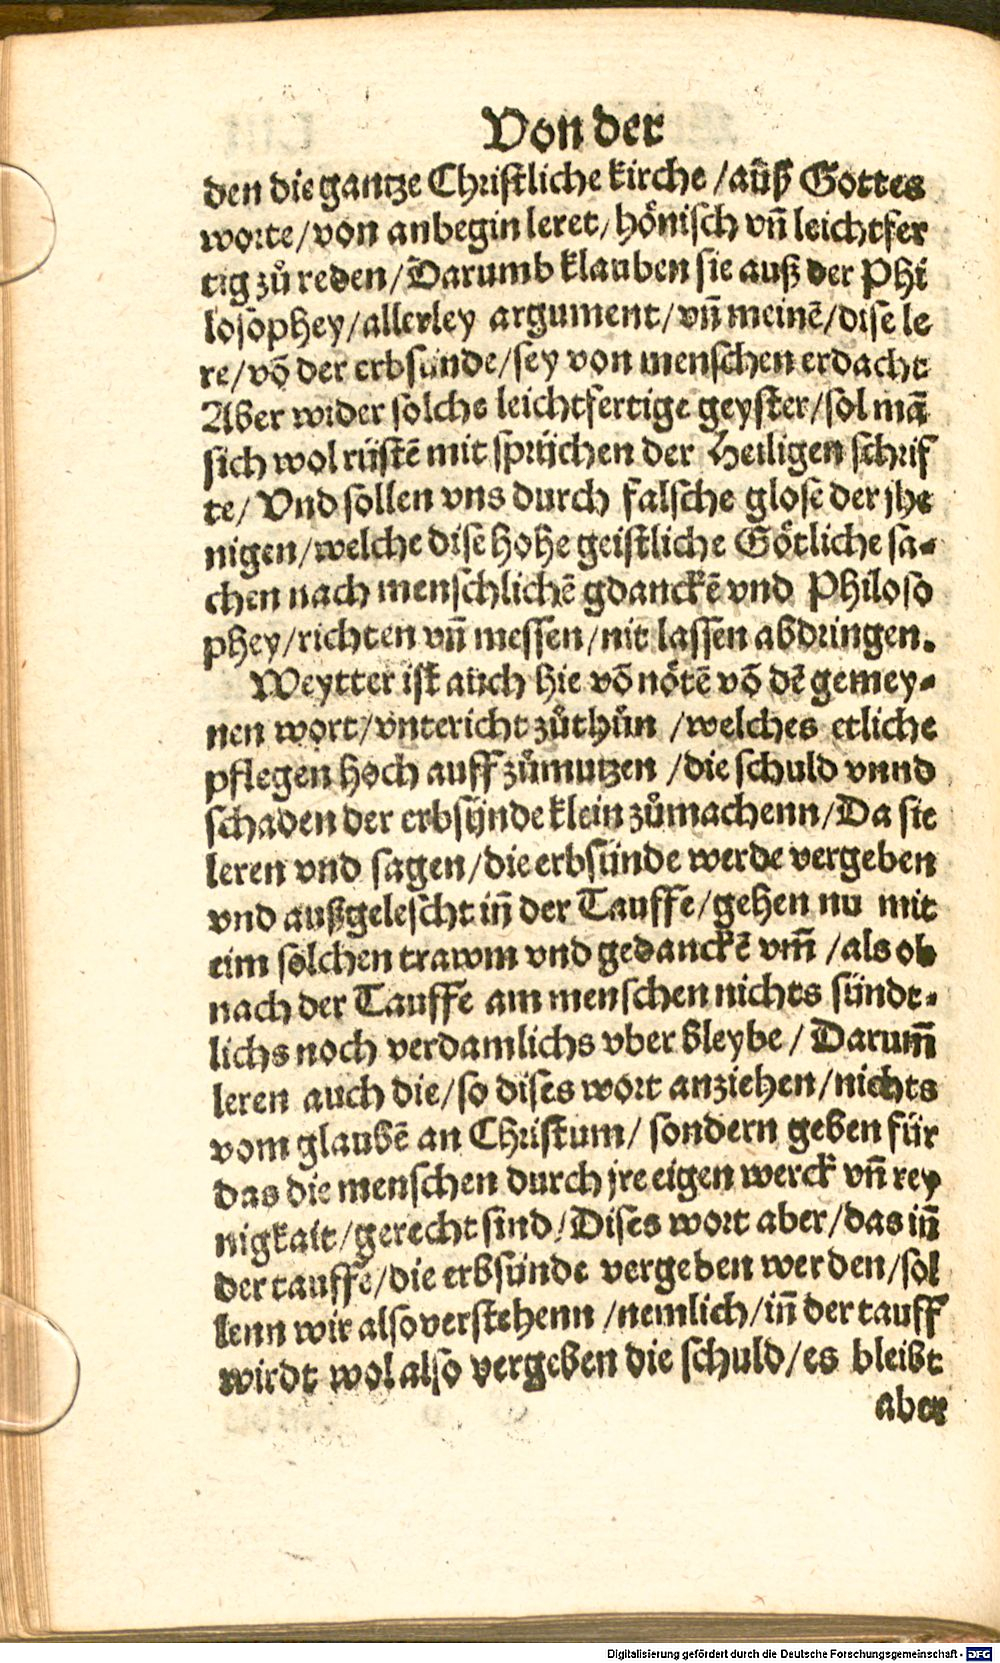 Von der
den die gantze Christliche kirche /auß Gottes
worte/von anbegin leret/hönisch vñ leichtfer
tig zů reden/Darumb klauben sie auß der Phi
losophey/allerley argument/vñ meinẽ/dise le
re/võ der erbsünde/sey von menschen erdacht
Aber wider solche leichtfertige geyster/sol mã
sich wol rüstẽ mit sprüchen der Heiligen schrif
te/ Vnd sollen vns durch falsche glose der jhe
nigen/welche dise hohe geistliche Götliche sa-
chen nach menschlichẽ gdanckẽ vnd Philoso
phey/richten vñ messen/nit lassen abdringen.
Weytter ist auch hie võ nötẽ võ dẽ gemey-
nen wort/vntericht zůthůn /welches etliche
pflegen hoch auff zůmutzen /die schuld vnnd
schaden der erbsünde klein zůmachenn/Da sie
leren vnd sagen/die erbsünde werde vergeben
vnd außgelescht iñ der Tauffe/gehen nu mit
eim solchen trawm vnd gedanckẽ vm̃ /als ob
nach der Tauffe am menschen nichts sündt-
lichs noch verdamlichs vber bleybe/ Darum̃
leren auch die/so dises wort anziehen/nichts
vom glaubẽ an Christum/ sondern geben für
das die menschen durch jre eigen werck vñ rey
nigkait/gerecht sind/Dises wort aber/das iñ
der tauffe/die erbsünde vergeben werden/sol
lenn wir also verstehenn /nemlich/iñ der tauff
wirdt wol also vergeben die schuld/es bleibt
aber
Digitalisierung gefördert durch die Deutsche Forschungsgemeinschaft - DFG